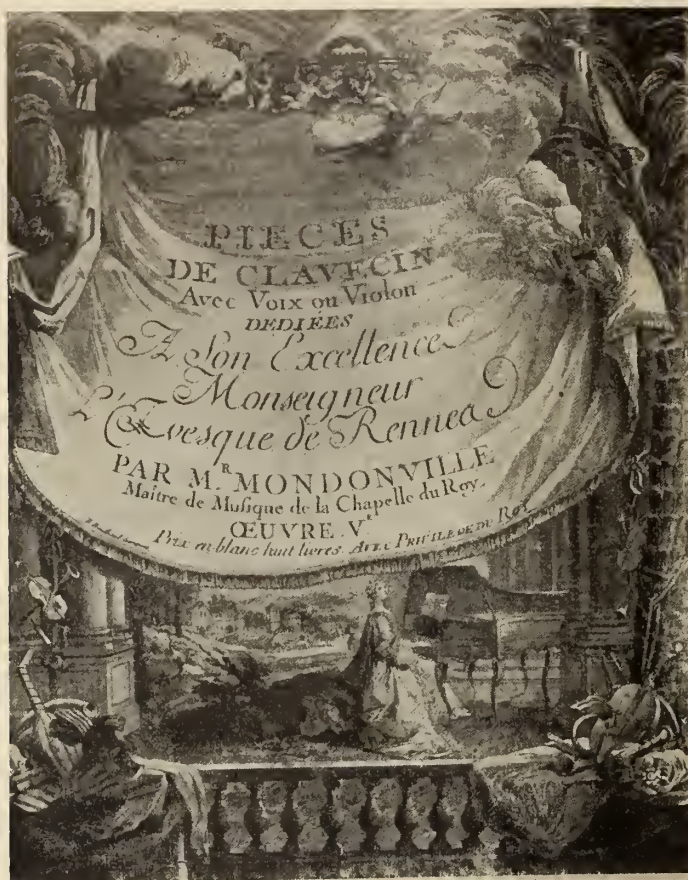 PIECES
DE CLAVECIN
Avec Voix ou Violon
DEDIÉES
A Son Excellence
Monseigneur
L'Evesque de Rennes
PAR M.R MONDONVILLE
Maître de Musique de la Chapelle du Roy.
ŒUVRE V.e
Prix en blanc huit livres. AVEC PRIVILEGE DU ROY